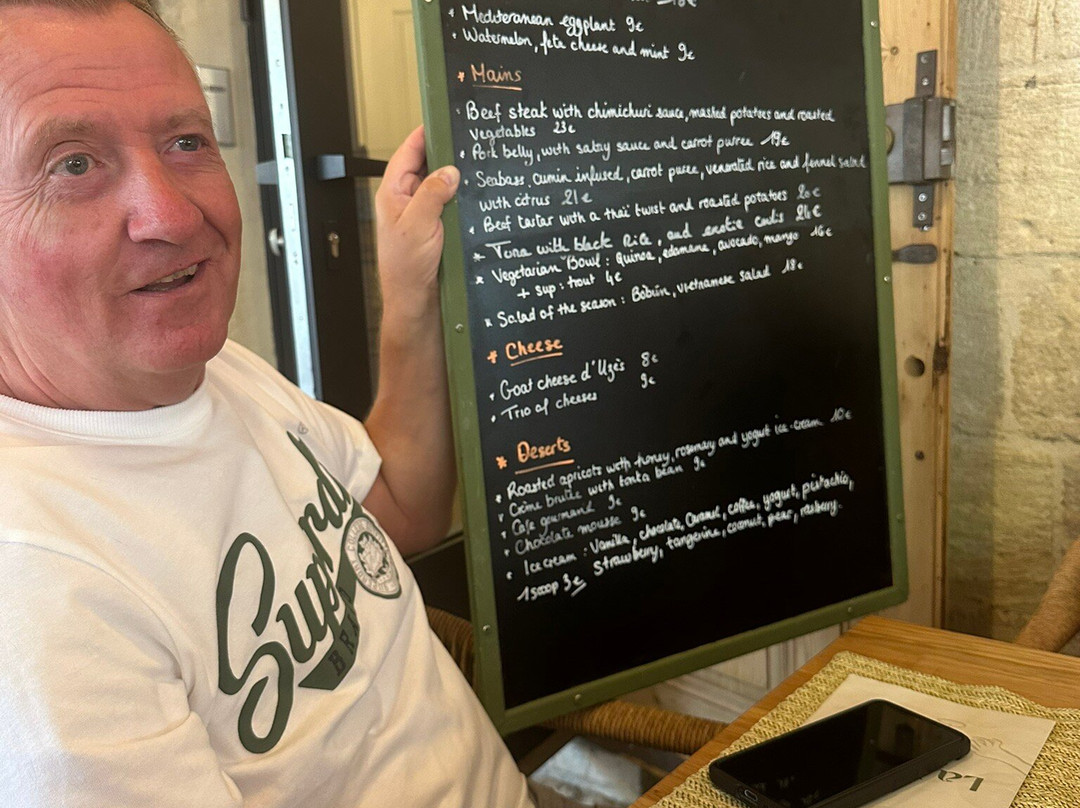 • Mediteranean eggplant 9€
• Watermelon, feta cheese and mint 9€
* Mains
• Beef steak with chimichuri sauce, mashed potatoes and roasted
vegetables 23€
• Pork belly, with satay sauce and carrot purree 19€
• Seabass, cumin infused, carrot puree, venerated rice and fennel salad
with citrus 21€
• Beef tartar with a thaï twist and roasted potatoes 20€
* Tuna with black Rice, and exotic coulis
* Vegetarian Bowl : Quinoa, edamame, avocado, mango 16€
+ sup : trout 4€
* Salad of the season : Bobùn, vietnamese salad 18€
* Cheese
• Goat cheese d'Uzès 8€
• Trio of cheeses 9€
* Deserts
• Roasted apricots with honey, rosemary and yogut ice-cream 10€
• Crème brulée with tonka bean 9€
• Café gourmand 9€
• Chocolate mousse 9€
• Ice cream : Vanilla, chocolate, Caramel, coffee, yogurt, pistachio,
1 scoop 3€ Strawberry, tangerine, coconut, pear, rasberry.
Superdry
BRA
La